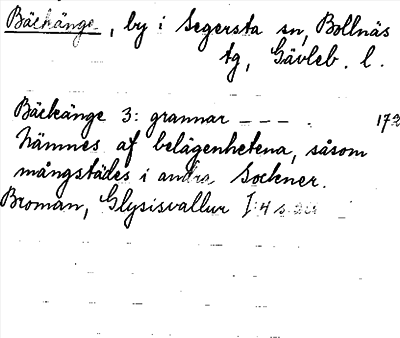 Bäckänge, by i Segersta sn, Bollnäs
tg, Gävleb. l.
Bäckänge 3: grannar - - - . 172
Nämnes af belägenhetena, såsom
mångstädes i andra Sockner.
Broman, Glysisvallur I:4 s.